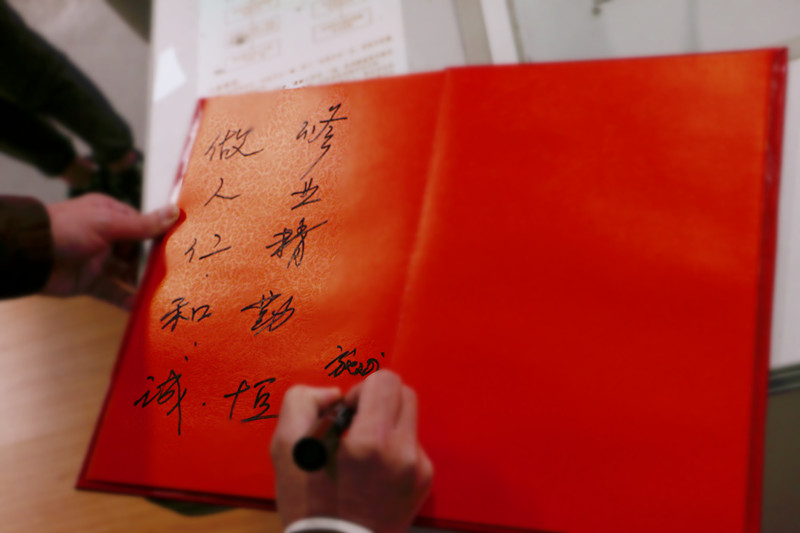 修业精勤恒
做人仁和诚